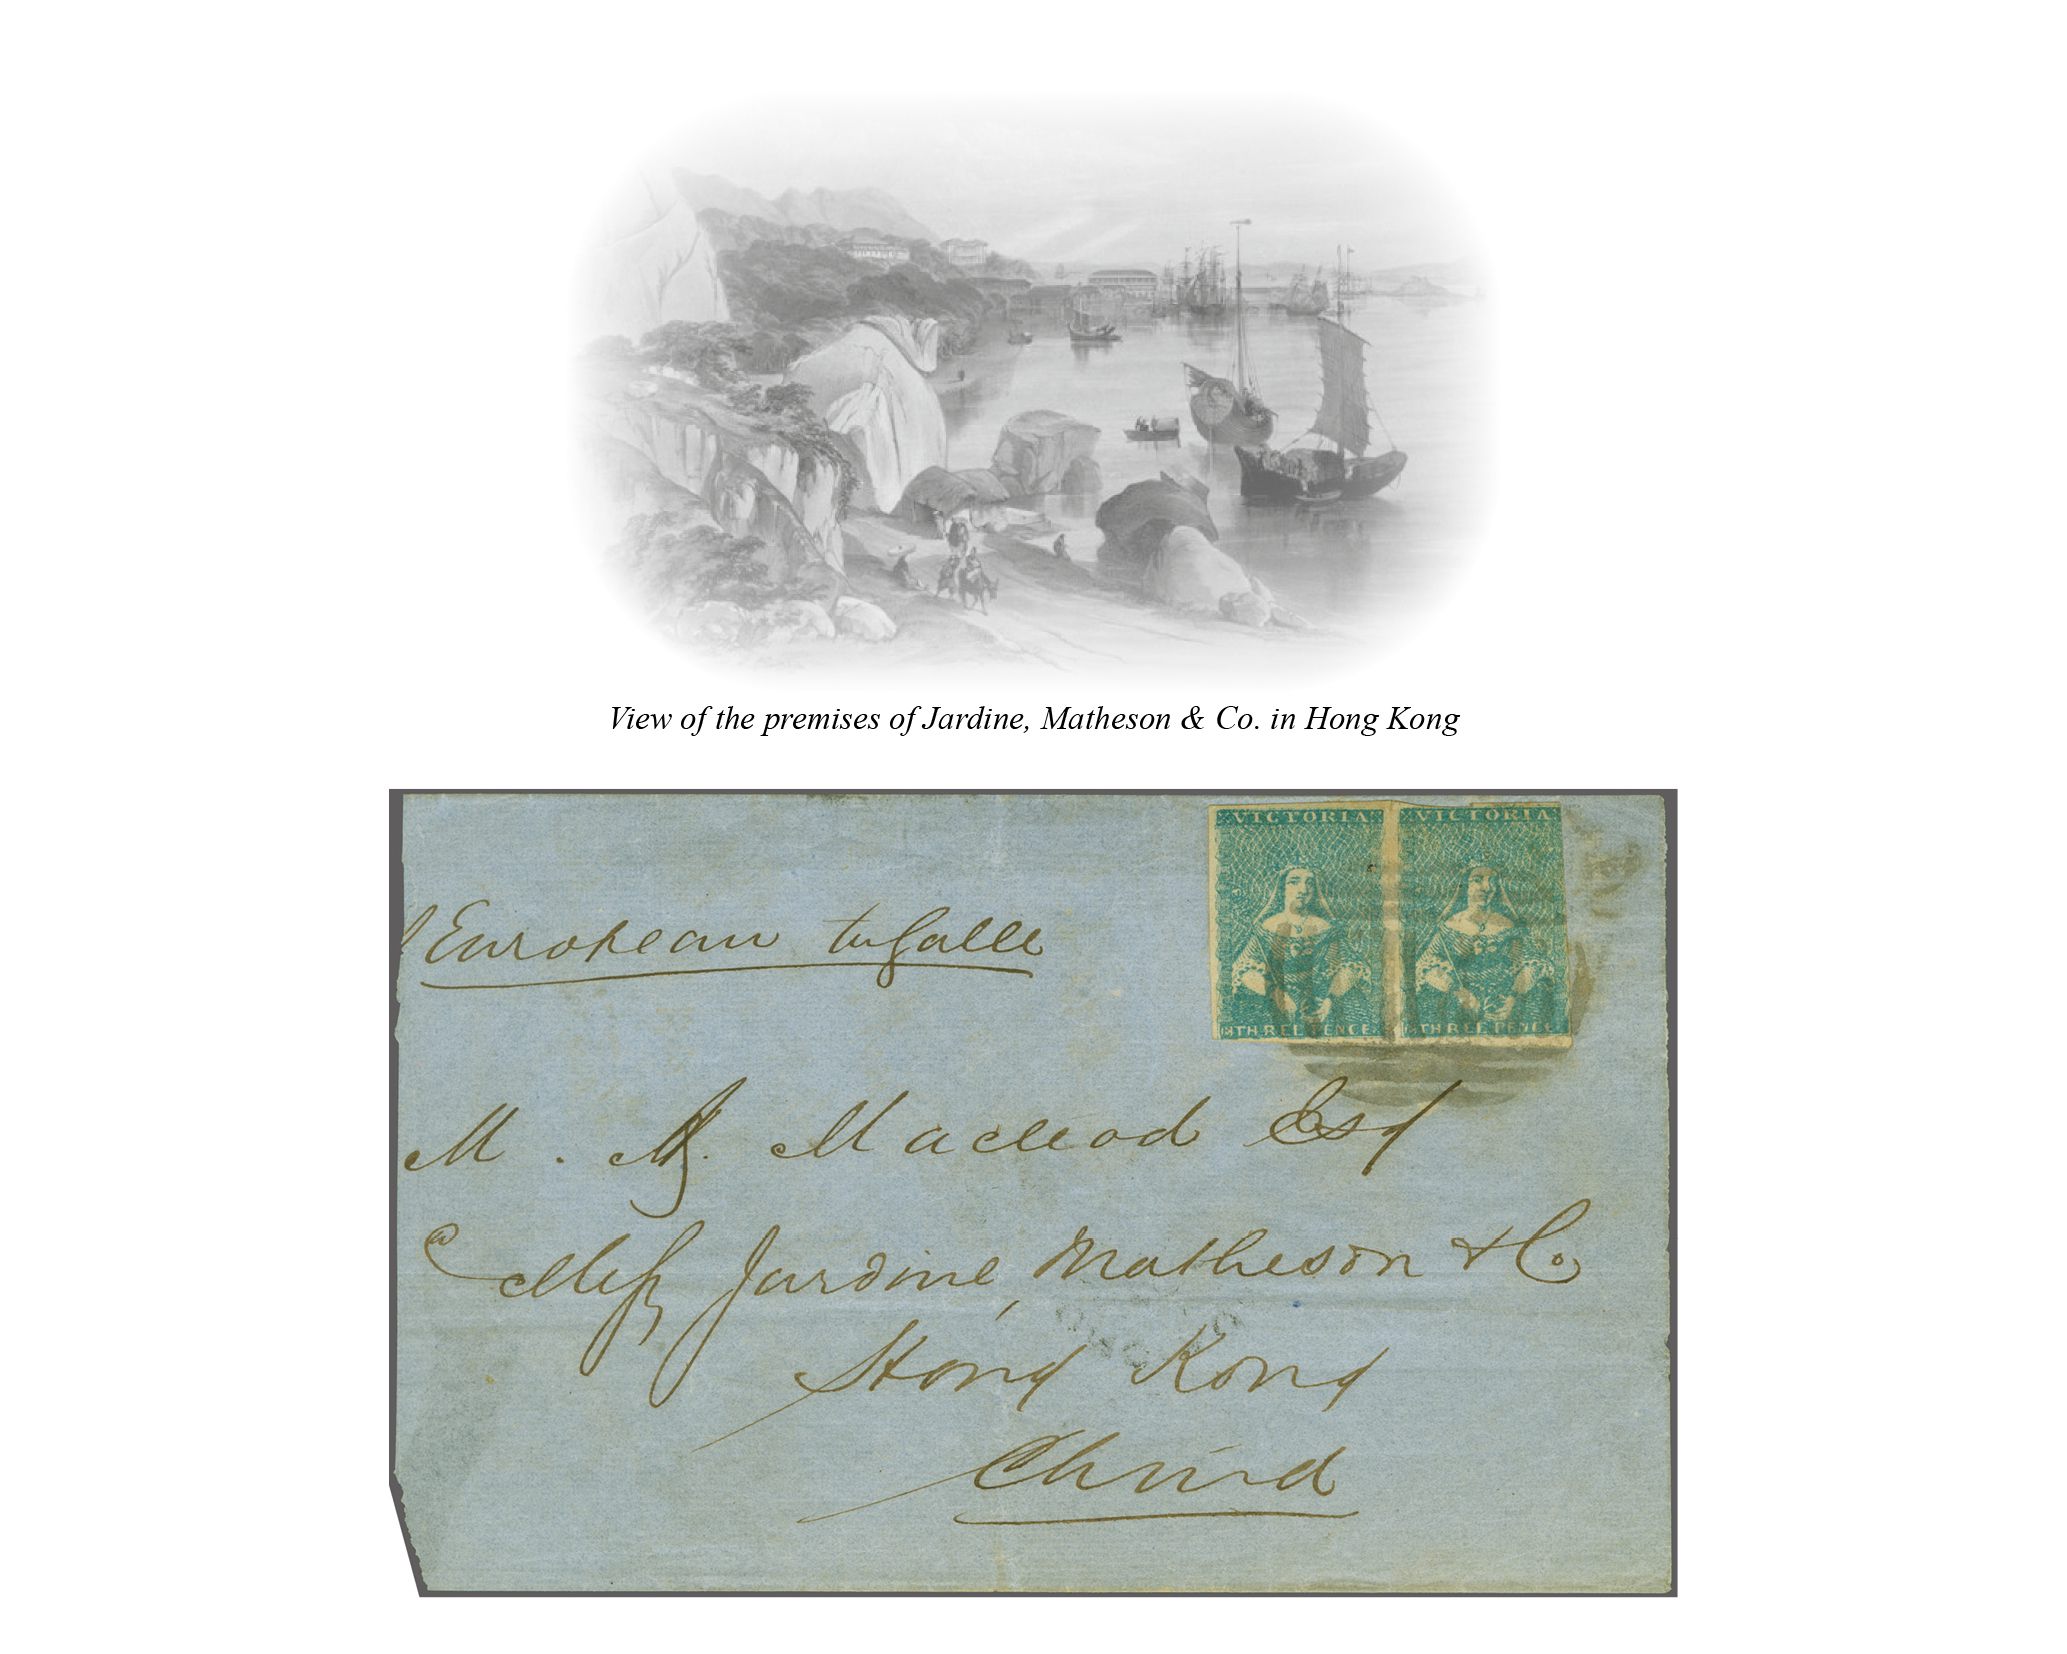 View of the premises of Jardine, Matheson & Co. in Hong Kong
VICTORIA VICTORIA
THREE PENCE THREE PENCE
European to Galle
M. A. Macleod Esq
Messrs Jardine, Matheson & Co
Hong Kong
China